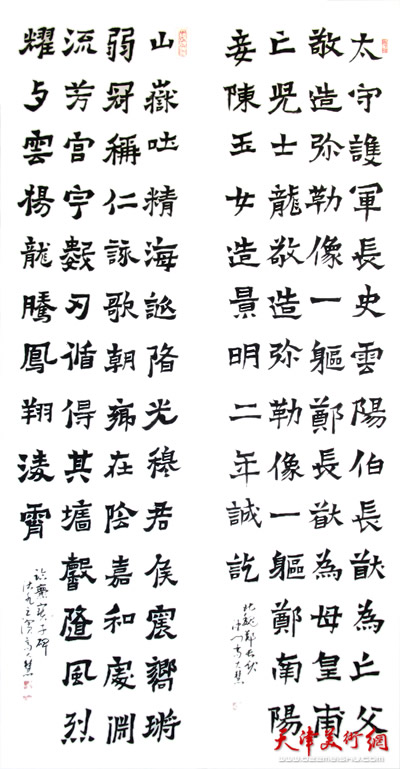 太守護軍長史雲陽伯長猷為亡父
敬造弥勒像一軀鄭長猷為母皇甫
亡児士龍敬造弥勒像一軀鄭南陽
妾陳玉女造景明二年誠訖
北魏鄭長猷
山嶽吐精海誕陼光穆君侯震嚮鏘
弱冠稱仁詠歌朝鄉在陰嘉和處淵
流芳宮宇數刃循得其墻馨隨風烈
耀与雲揚龍騰鳳翔淩霄
臨爨寶子碑
天津美術網